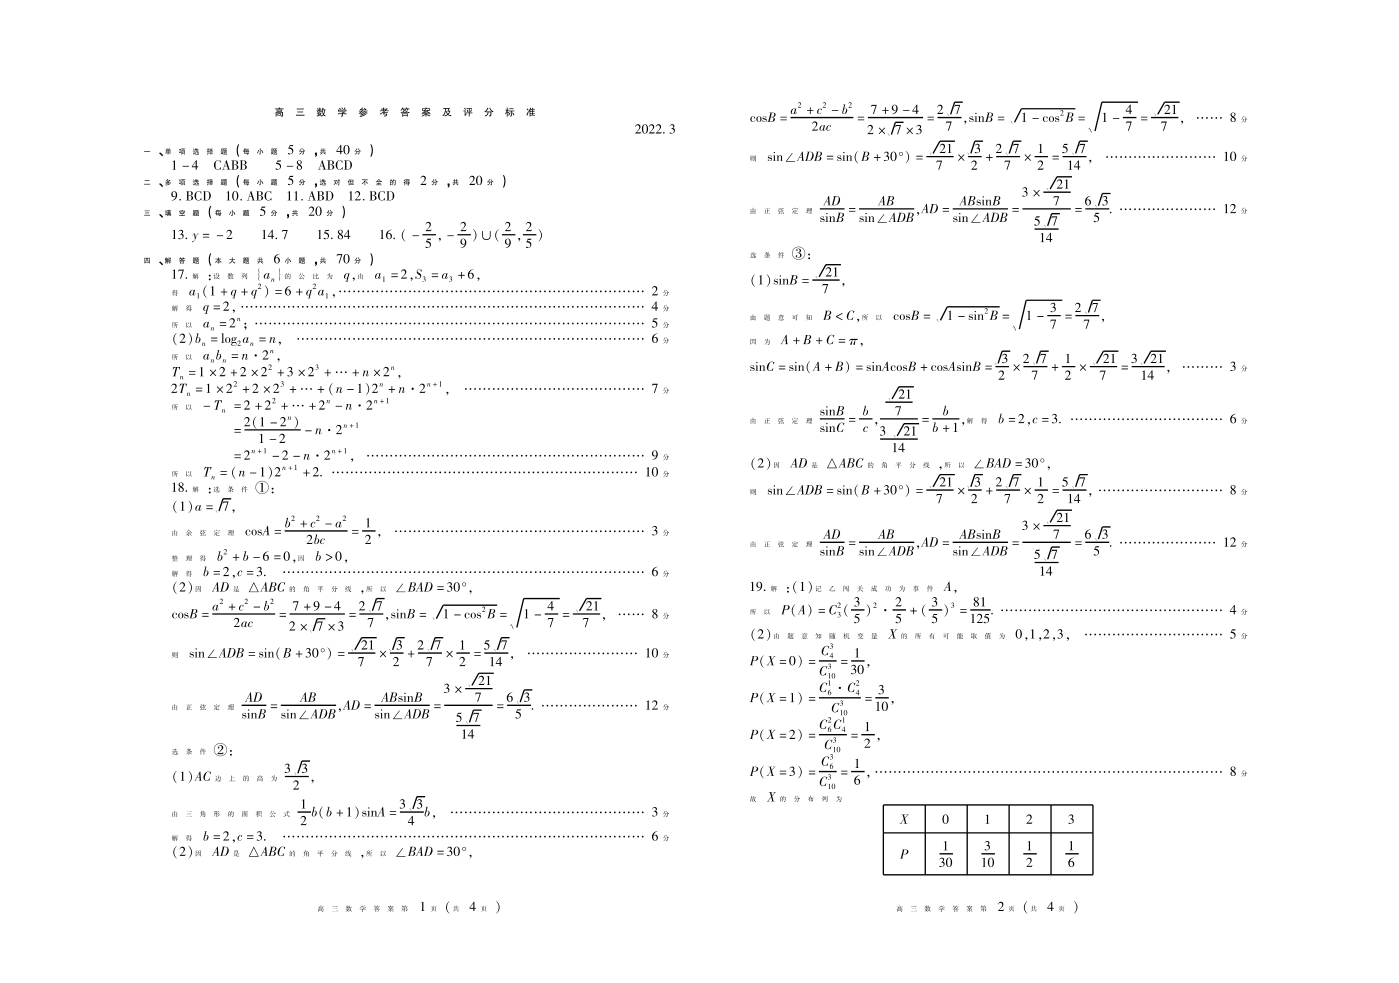 高三数学参考答案及评分标准
2022.3
一、单项选择题(每小题5分,共40分)
1-4 CABB 5-8 ABCD
二、多项选择题(每小题5分,选对但不全的得2分,共20分)
9. BCD 10. ABC 11. ABD 12. BCD
三、填空题(每小题5分,共20分)
13. y=-2 14. 7 15. 84 16. (-2/5,-2/9)∪(2/9,2/5)
四、解答题(本大题共6小题,共70分)
17. 解:设数列{aₙ}的公比为q,由 a₁=2,S₃=a₃+6,
得 a₁(1+q+q²)=6+q²a₁,…… 2分
解得 q=2,…… 4分
所以 aₙ=2ⁿ;…… 5分
(2)bₙ=log₂aₙ=n, …… 6分
所以 aₙbₙ=n·2ⁿ,
Tₙ=1×2+2×2²+3×2³+…+n×2ⁿ,
2Tₙ=1×2²+2×2³+…+(n-1)2ⁿ+n·2ⁿ⁺¹, …… 7分
所以 -Tₙ=2+2²+…+2ⁿ-n·2ⁿ⁺¹
=2(1-2ⁿ)/(1-2)-n·2ⁿ⁺¹
=2ⁿ⁺¹-2-n·2ⁿ⁺¹, …… 9分
所以 Tₙ=(n-1)2ⁿ⁺¹+2. …… 10分
18. 解:选条件①:
(1)a=√7,
由余弦定理 cosA=(b²+c²-a²)/2bc=1/2, …… 3分
整理得 b²+b-6=0,因 b>0,
解得 b=2,c=3. …… 6分
(2)因 AD是△ABC的角平分线,所以∠BAD=30°,
cosB=(a²+c²-b²)/2ac=(7+9-4)/(2×√7×3)=2√7/7,sinB=√(1-cos²B)=√(1-4/7)=√21/7, …… 8分
则 sin∠ADB=sin(B+30°)=√21/7×√3/2+2√7/7×1/2=5√7/14, …… 10分
由正弦定理 AD/sinB=AB/sin∠ADB,AD=ABsinB/sin∠ADB=(3×√21/7)/(5√7/14)=6√3/5. …… 12分
选条件②:
(1)AC边上的高为 3√3/2,
由三角形的面积公式 1/2b(b+1)sinA=3√3/4b, …… 3分
解得 b=2,c=3. …… 6分
(2)因 AD是△ABC的角平分线,所以∠BAD=30°,
高三数学答案第1页(共4页)
cosB=(a²+c²-b²)/2ac=(7+9-4)/(2×√7×3)=2√7/7,sinB=√(1-cos²B)=√(1-4/7)=√21/7, …… 8分
则 sin∠ADB=sin(B+30°)=√21/7×√3/2+2√7/7×1/2=5√7/14, …… 10分
由正弦定理 AD/sinB=AB/sin∠ADB,AD=ABsinB/sin∠ADB=(3×√21/7)/(5√7/14)=6√3/5. …… 12分
选条件③:
(1)sinB=√21/7,
由题意可知 B<C,所以 cosB=√(1-sin²B)=√(1-3/7)=2√7/7,
因为 A+B+C=π,
sinC=sin(A+B)=sinAcosB+cosAsinB=√3/2×2√7/7+1/2×√21/7=3√21/14, …… 3分
由正弦定理 sinB/sinC=b/c,(√21/7)/(3√21/14)=b/(b+1),解得 b=2,c=3. …… 6分
(2)因 AD是△ABC的角平分线,所以∠BAD=30°,
则 sin∠ADB=sin(B+30°)=√21/7×√3/2+2√7/7×1/2=5√7/14, …… 8分
由正弦定理 AD/sinB=AB/sin∠ADB,AD=ABsinB/sin∠ADB=(3×√21/7)/(5√7/14)=6√3/5. …… 12分
19. 解:(1)记乙闯关成功为事件A,
所以 P(A)=C₃²(3/5)²·2/5+(3/5)³=81/125. …… 4分
(2)由题意知随机变量X的所有可能取值为0,1,2,3, …… 5分
P(X=0)=C₄³/C₁₀³=1/30,
P(X=1)=C₆¹·C₄²/C₁₀³=3/10,
P(X=2)=C₆²C₄¹/C₁₀³=1/2,
P(X=3)=C₆³/C₁₀³=1/6, …… 8分
故X的分布列为
X 0 1 2 3
P 1/30 3/10 1/2 1/6
高三数学答案第2页(共4页)